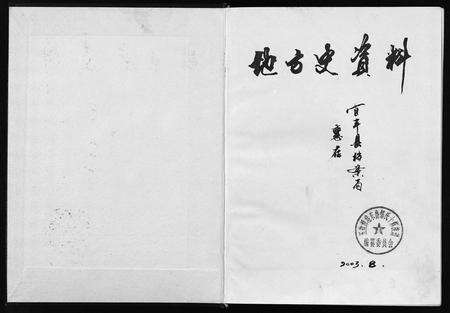 地方史资料
宜丰县档案局
惠存
编纂委员会
2003.8.